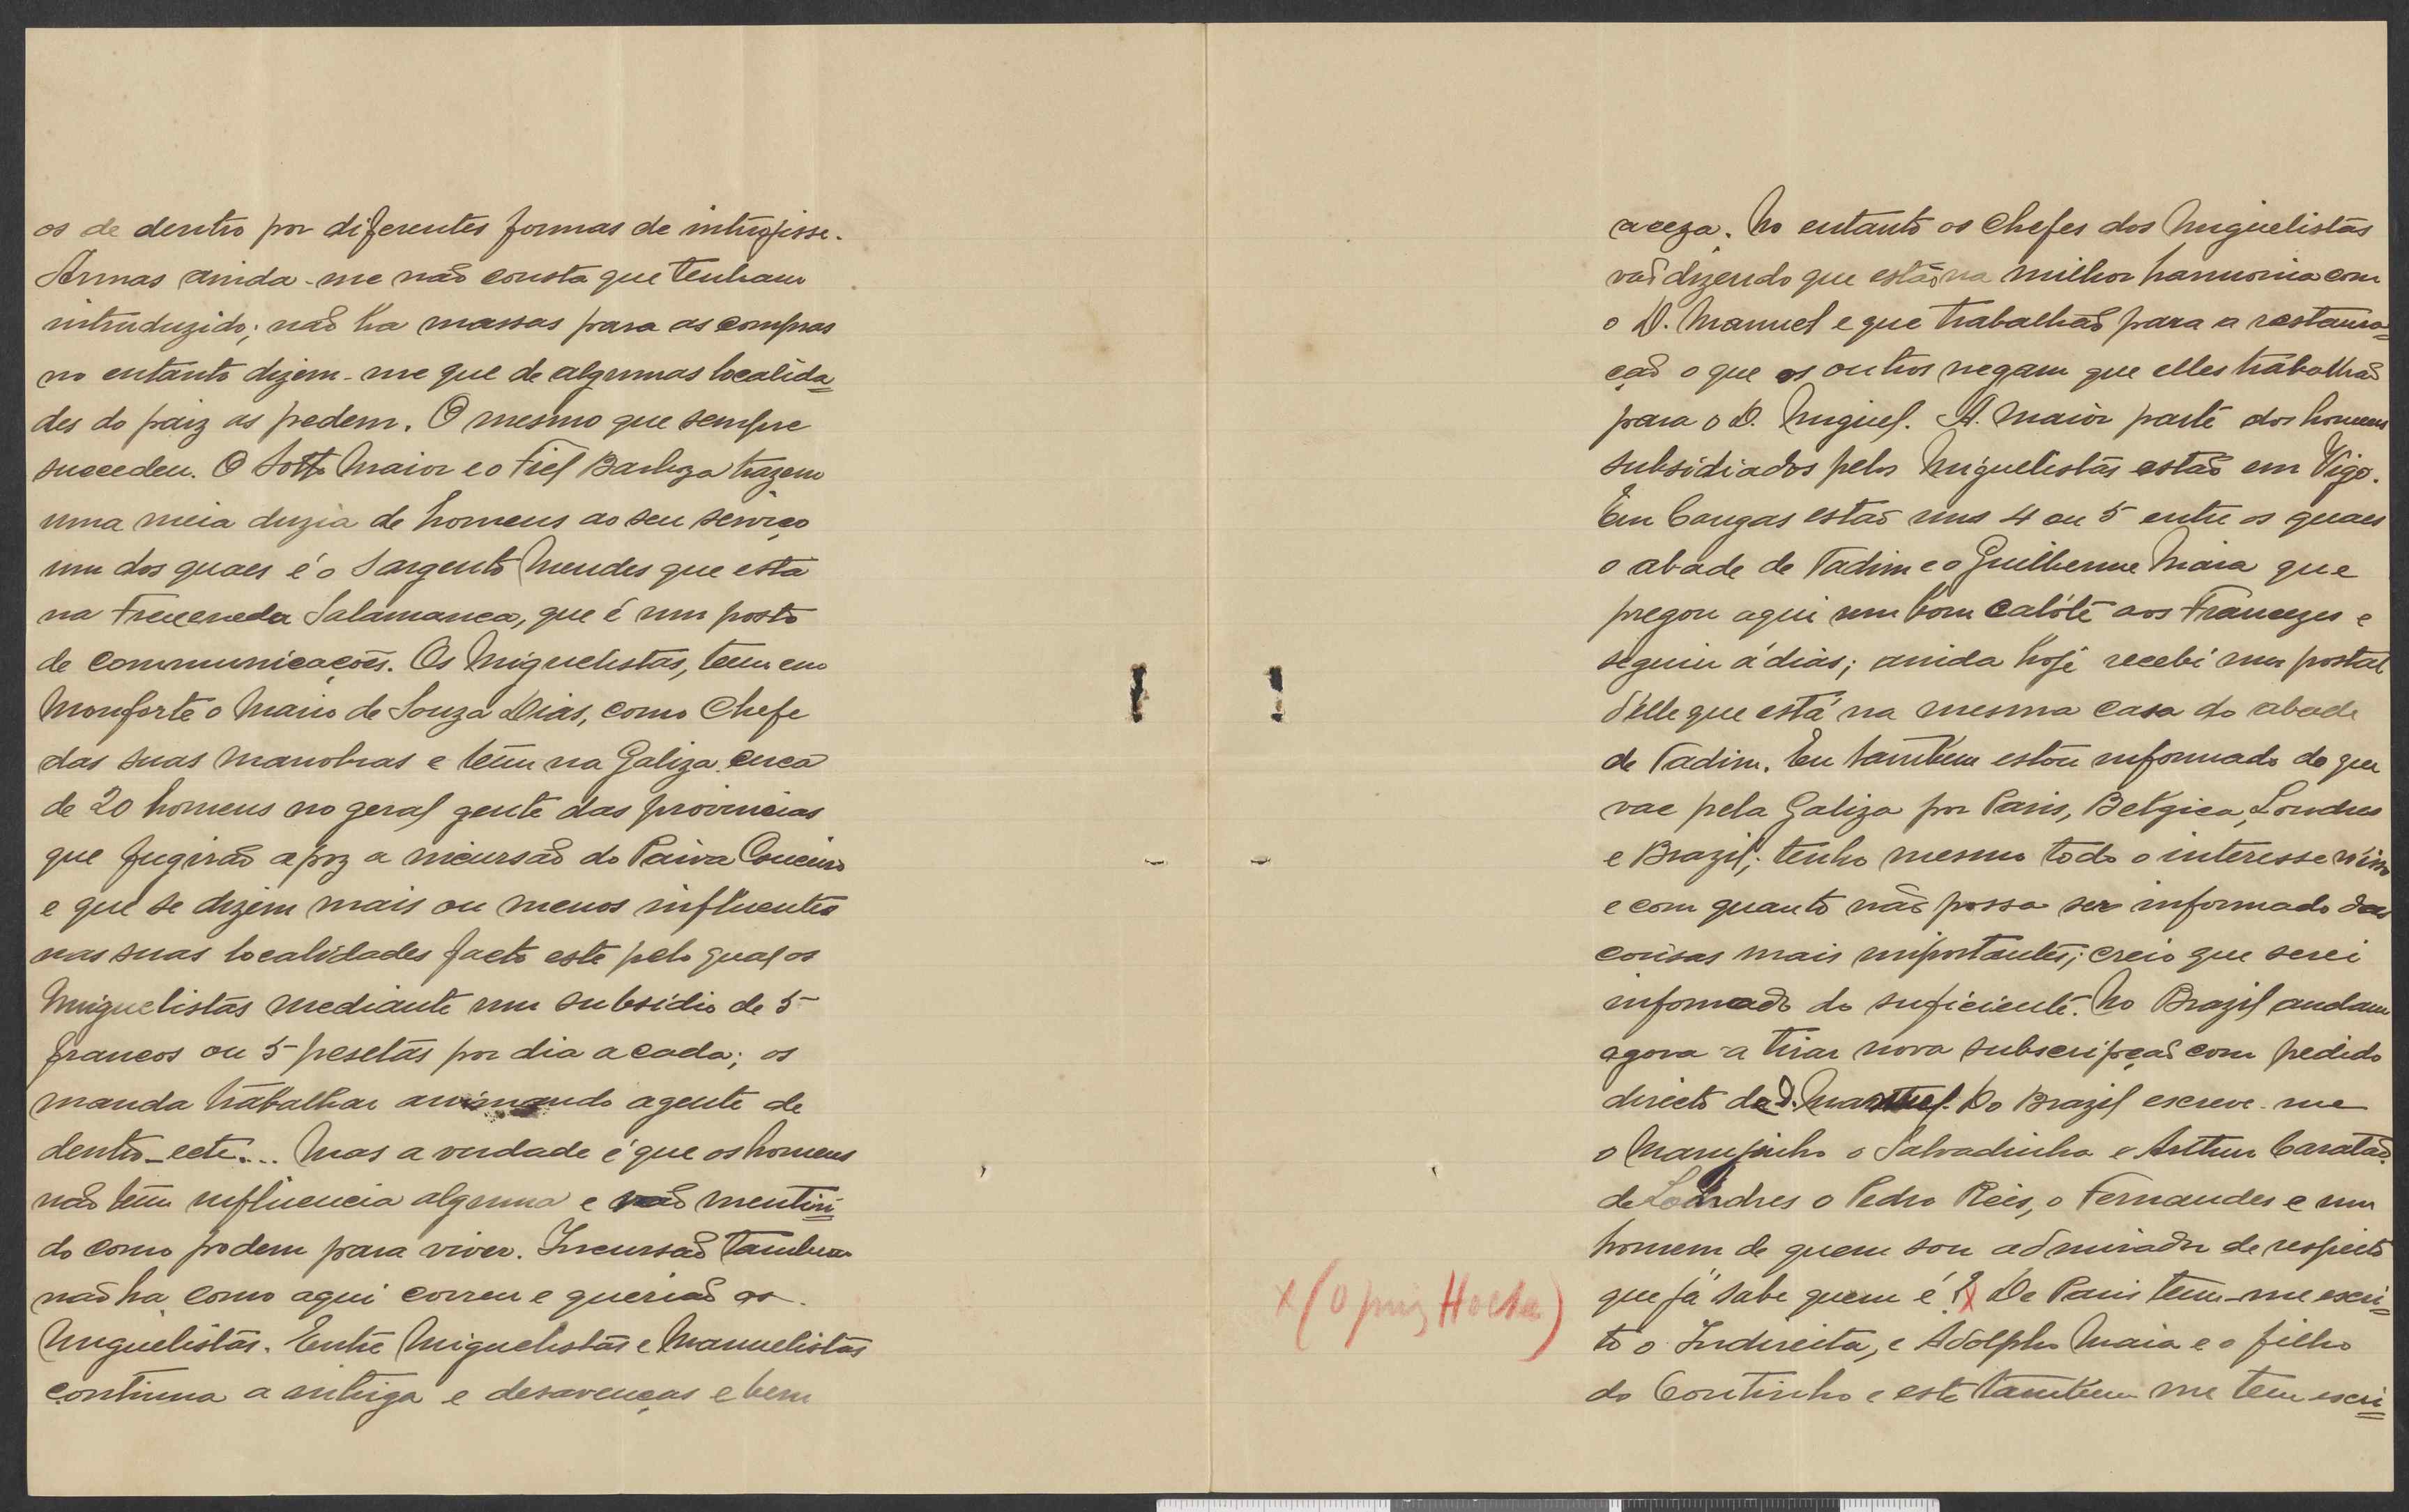 os de dentro por diferentes formas de intrujisse.
Armas ainda-me não consta que tenham
introduzido; não ha massas para as compras
no entanto dizem-me que de algumas localida=
des do paiz as pedem. O mesmo que sempre
succedeu. O Sotto Maior e o Fiel Barboza trazem
uma meia duzia de homens ao seu serviço
um dos quaes é o Sargento Mendes que esta
na Freceneda Salamanca, que é um posto
de communicações. Os Miguelistas, tem em
Monforte o Mario de Souza Dias, como Chefe
das suas manobras e tem na Galiza cerca
de 20 homens no geral gente das provincias
que fugirão apoz a incursão do Paiva Couceiro
e que se dizem mais ou menos influentes
nas suas localidades facto este pelo qual os
Miguelistas mediante um subsidio de 5
francos ou 5 pesetas por dia a cada; os
manda trabalhar animando a gente de
dentro-ect.... Mas a verdade é que os homens
não tem influencia alguma e vão mentin=
do como podem para viver. Incursão tambem
não ha como aqui correu e querião os
Miguelistas. Entre Miguelistas e Manuelistas
continua a intriga e desavenças e bem
aceza. No entanto os Chefes dos Miguelistas
vão dizendo que estão na milhor harmonia com
o D. Manuel e que trabalhão para a restaura=
ção o que os outros negam que elles trabalhão
para o D. Miguel. A. maior parte dos homens
subsidiados pelos Miguelistas estão em Vigo.
Em Cangas estão uns 4 ou 5 entre os quaes
o abade de Tadim e o Guilherme Maia que
pregou aqui um bom calóte aos Francezes e
seguiu á dias; ainda hoje recebi um postal
d'elle que está na mesma casa do abade
de Tadim. Eu tambem estou informado do que
vae pela Galiza por Paris, Belgica, Londres
e Brazil; tenho mesmo todo o interesse n'isso
e com quanto não possa ser informado das
cousas mais importantes; creio que serei
informado do suficiente. No Brazil andam
agora a tirar nova subscripção com pedido
directo de D. Manuel. Do Brazil escreve-me
o Marujinho o Salvadinha e Arthur Caratão.
de Londres o Pedro Reis, o Fernandes e um
homem de quem sou admirador de respeito
que já sabe quem é? X De Paris tem-me escri=
X (O Horta)
to o Indireita, e Adolpho Maia e o filho
do Coutinho e este tambem me tem escri=